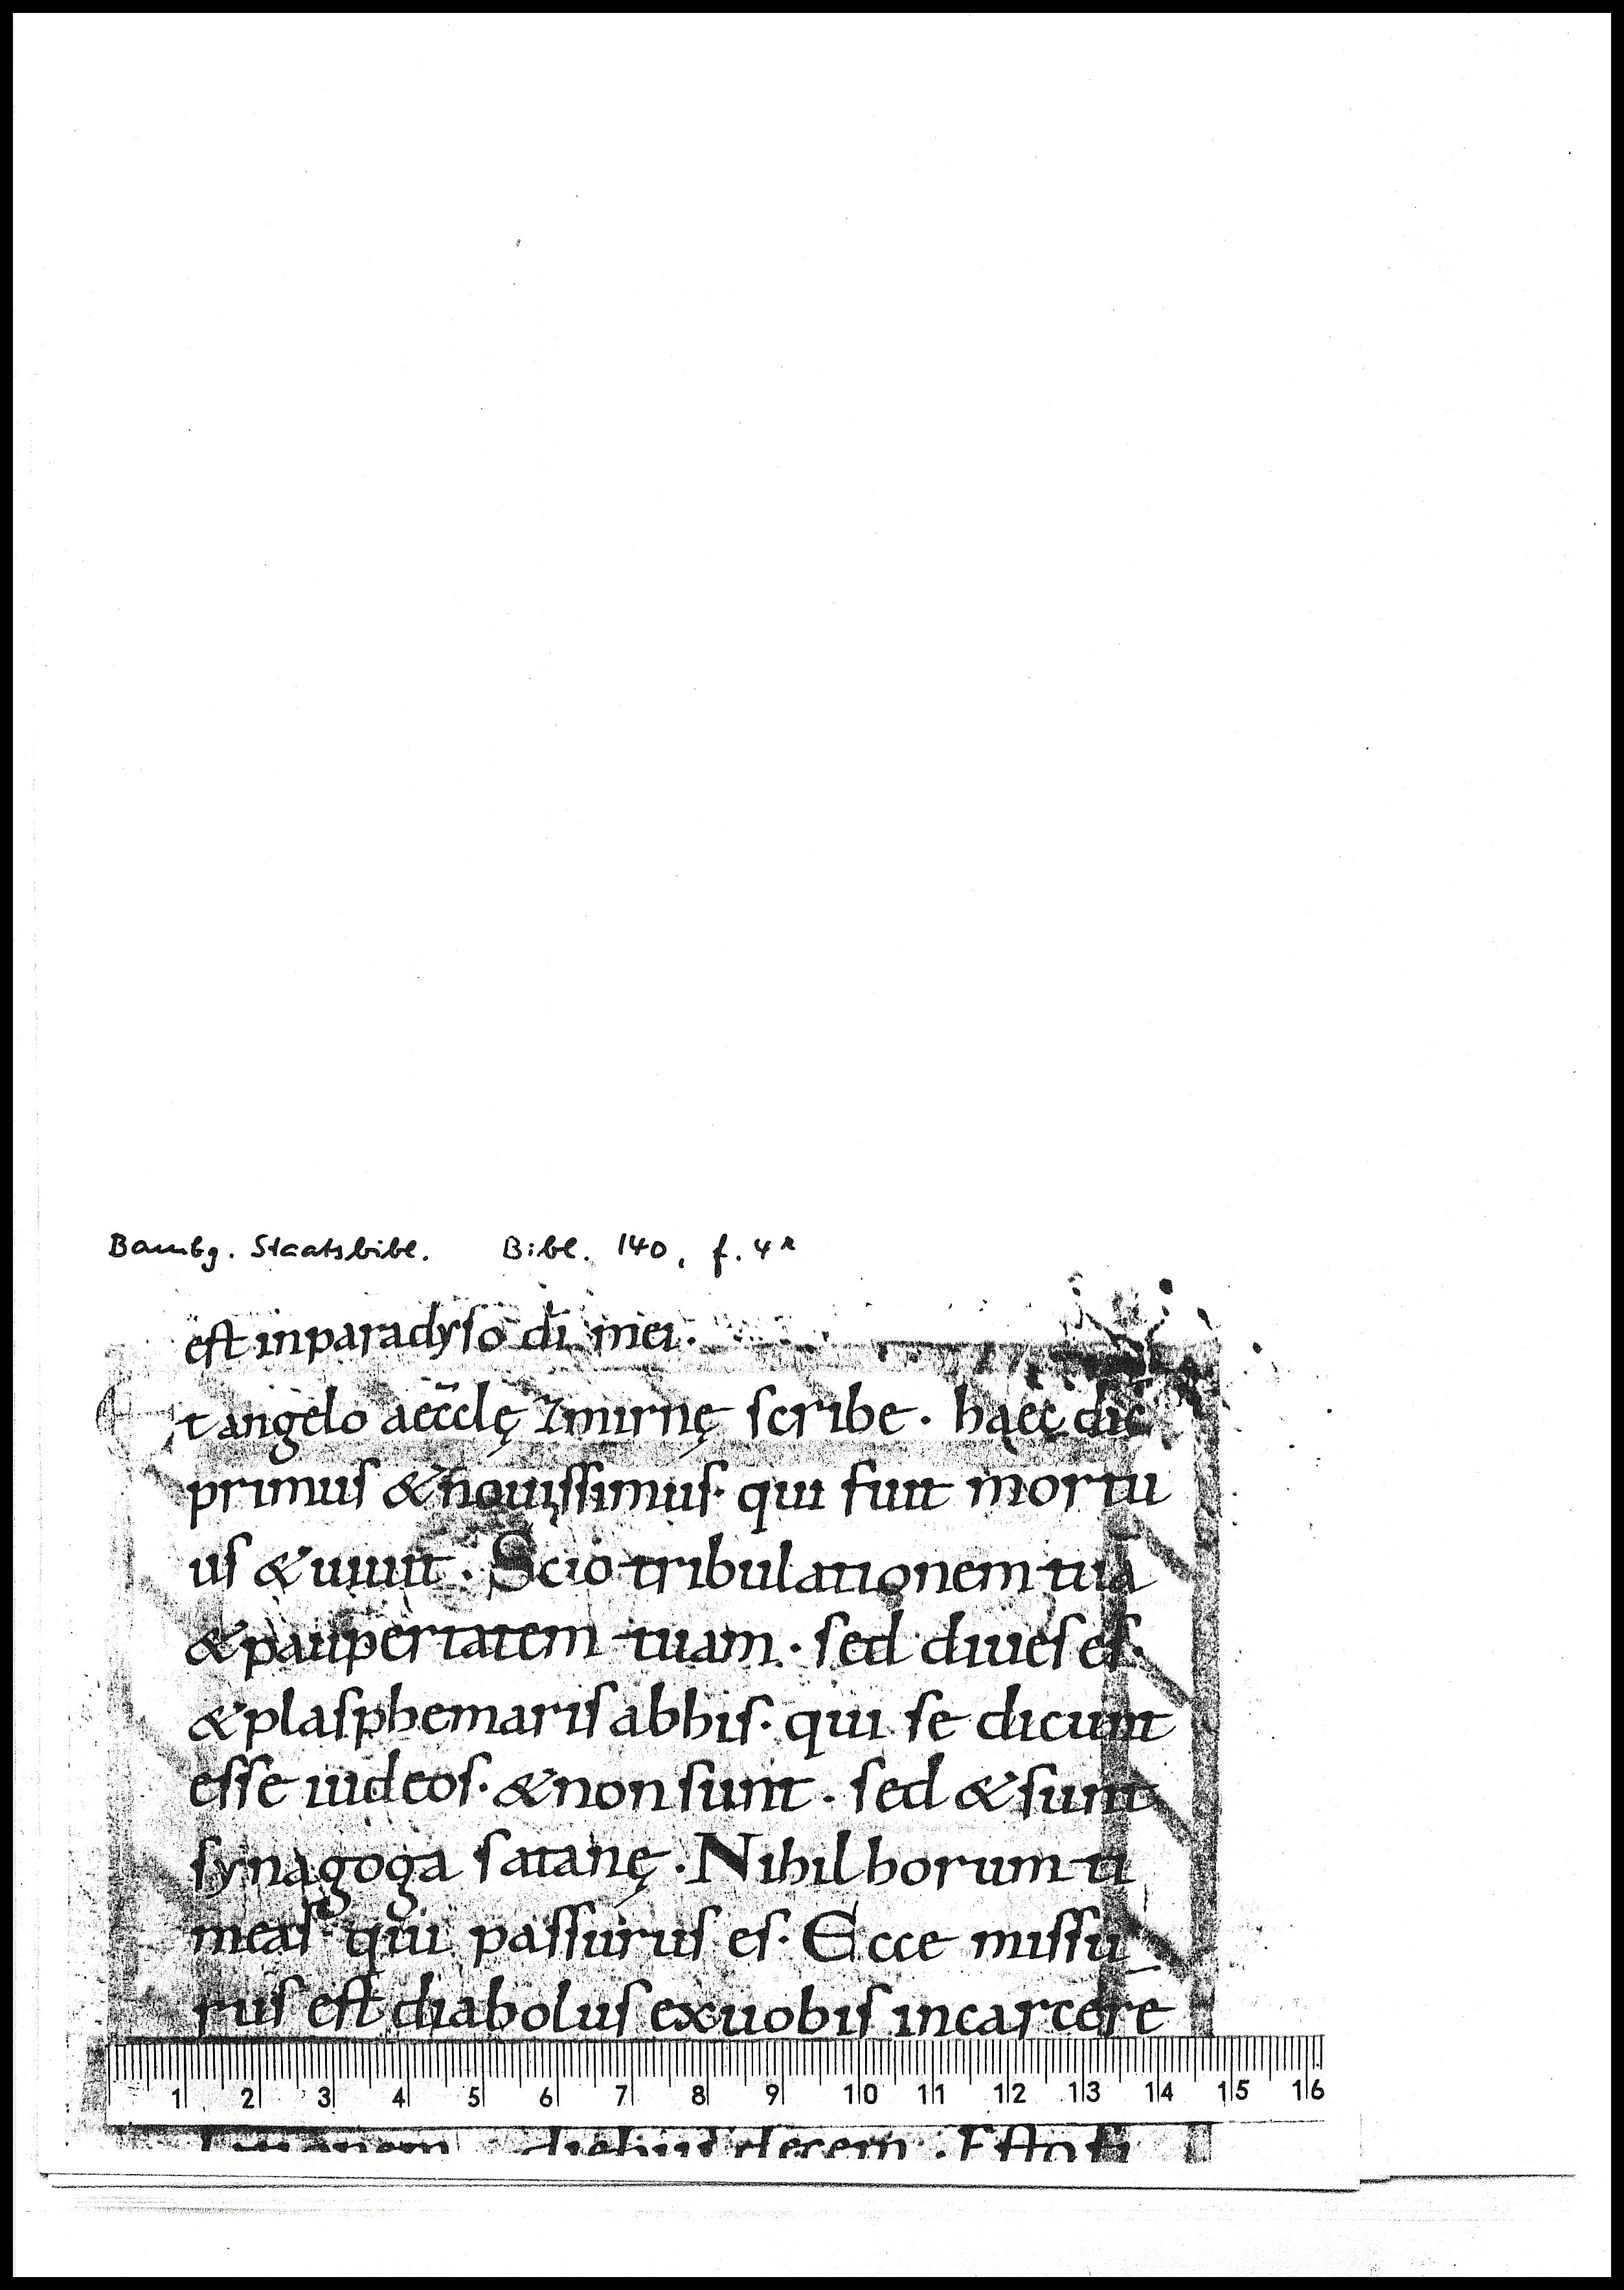 Bambg. Staatsbibl. Bibl. 140, f. 4r
est inparadyso dī mei.
Et angelo aeccłę Zmirnę scribe. haec dic̄
primus & nouissimus. qui fuit mortu
us & uiuit. Scio tribulationem tuā
& paupertatem tuam. sed diues es.
& plasphemaris abhis. qui se dicunt
esse iudeos. & non sunt. sed & sunt
synagoga satanę. Nihil horum ti
meas. qui passurus es. Ecce missu
rus est diabolus exuobis incarcerē
1 2 3 4 5 6 7 8 9 10 11 12 13 14 15 16
diebus decem. Esto fi